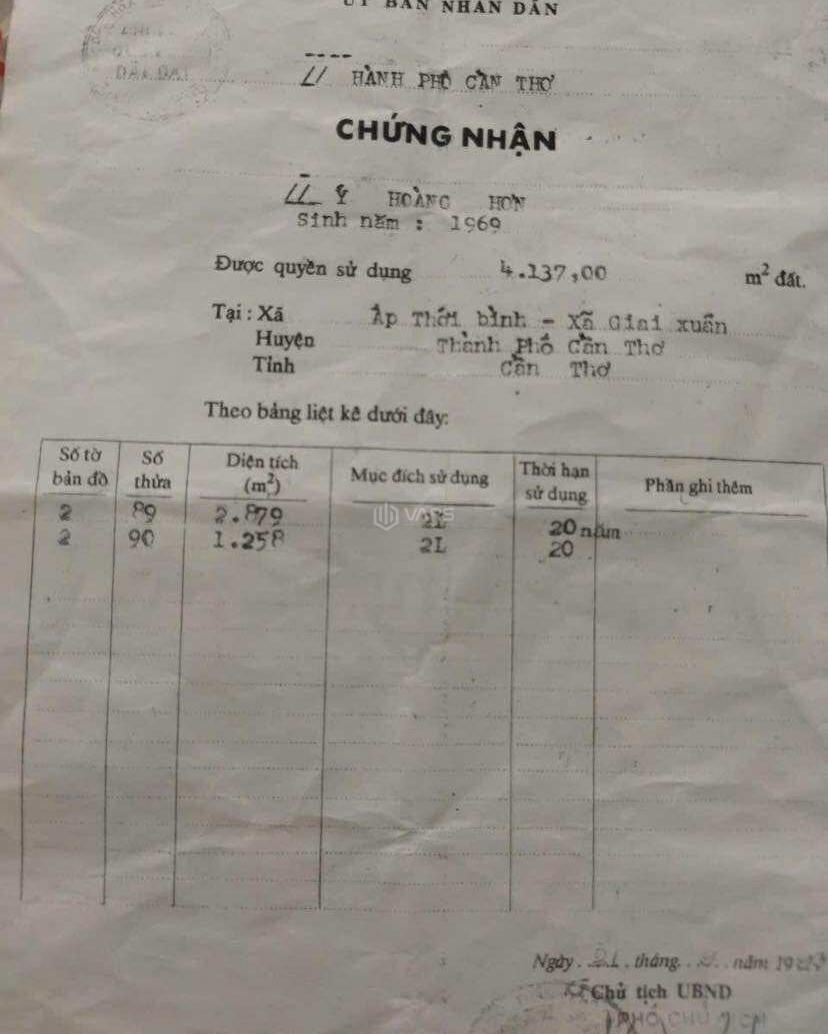 ỦY BAN NHÂN DÂN
HÀNH PHỐ CẦN THƠ
CHỨNG NHẬN
HOÀNG HƠN
Sinh năm : 1969
Được quyền sử dụng 4.137,00 m² đất.
Tại : Xã Ấp Thới bình - Xã Giai xuân
Huyện Thành Phố Cần Thơ
Tỉnh Cần Thơ
Theo bảng liệt kê dưới đây:
Số tờ bản đồ Số thửa Diện tích (m²) Mục đích sử dụng Thời hạn sử dụng Phần ghi thêm
2 89 2.879 2L 20 năm
2 90 1.258 2L 20
VARS
Ngày 21 tháng năm 19
Chủ tịch UBND
PHÓ CHỦ TỊCH